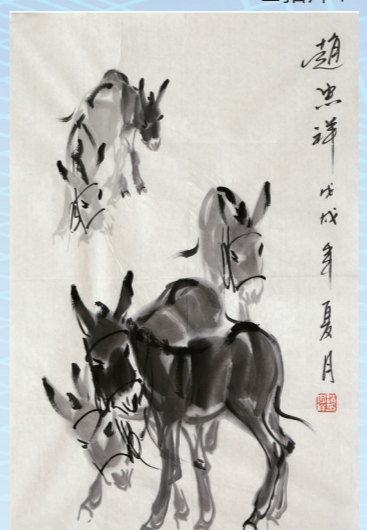 趙忠祥戊戌年夏月